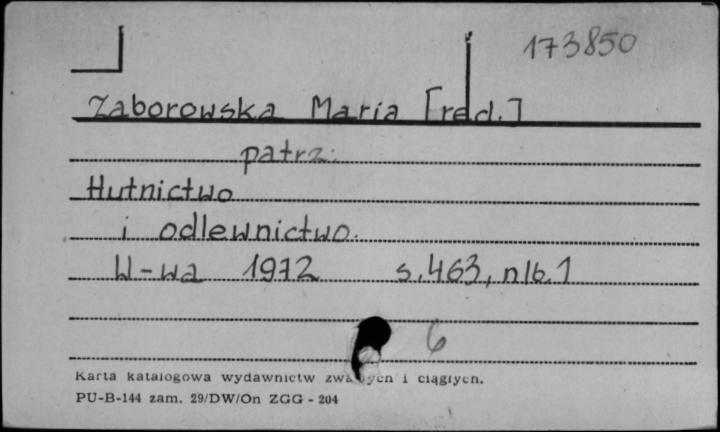 173850
Zaborowska Maria [red.]
patrz:
Hutnictwo
i odlewnictwo.
W-wa 1972 s. 463, nlb. 1
6
Karta katalogowa wydawnictw zwartych i ciągłych.
PU-B-144 zam. 29/DW/On ZGG - 204